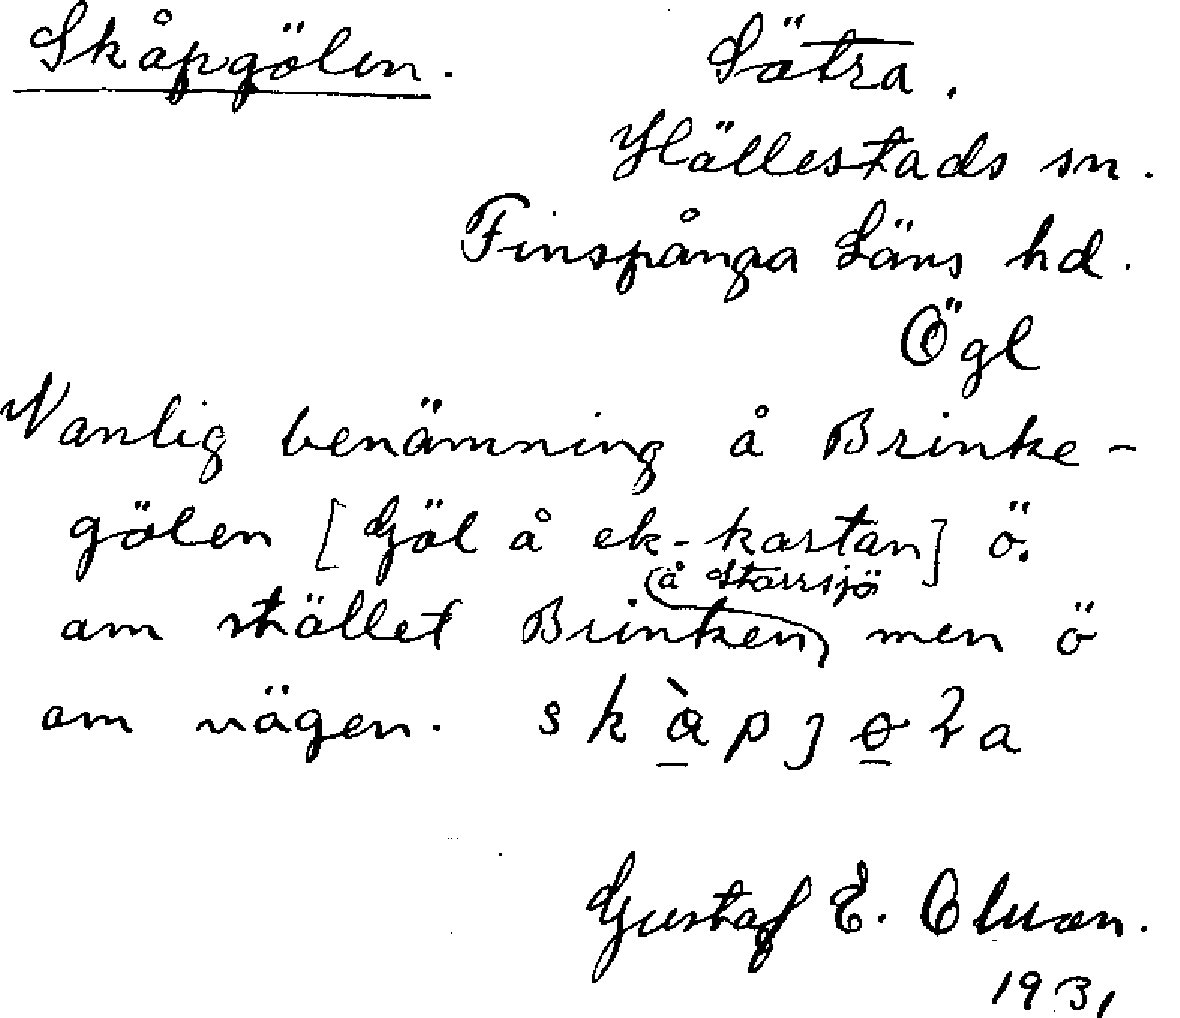 Skåpgölen. Sätra.
Hällestads sn.
Finspånga Läns hd.
Ögl
Vanlig benämning å Brinke-
gölen [Göl å ek-kartan] ö.
å Storrsjö
om stället Brinken, men ö
om vägen.
Gustaf E.
1931